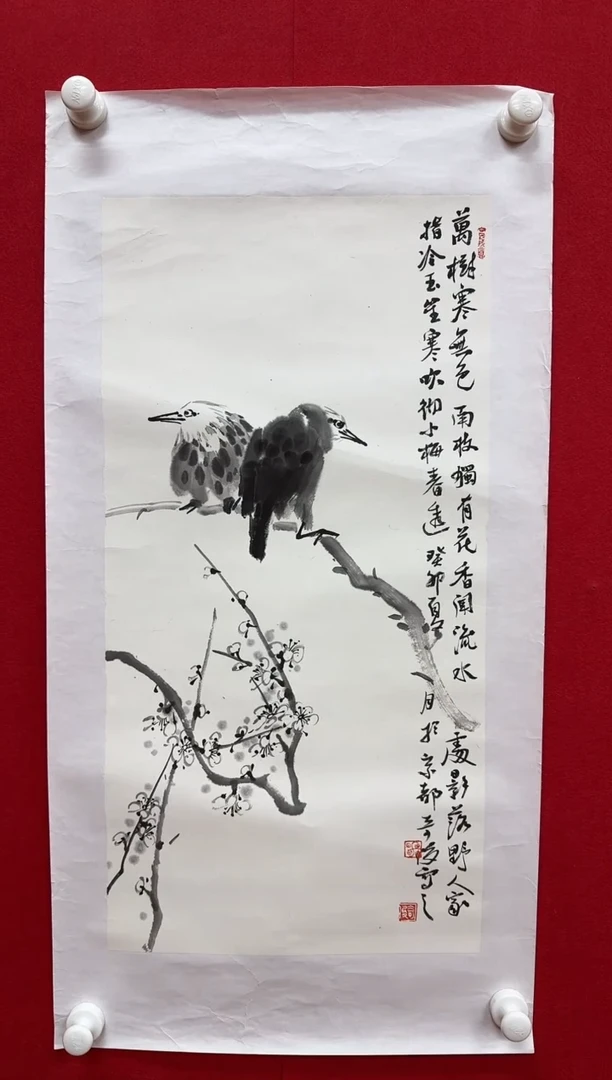 萬樹寒無色南枝獨有花香聞流水處影落野人家
指冷玉笙寒吹彻小梅春透癸卯月於京都寫之